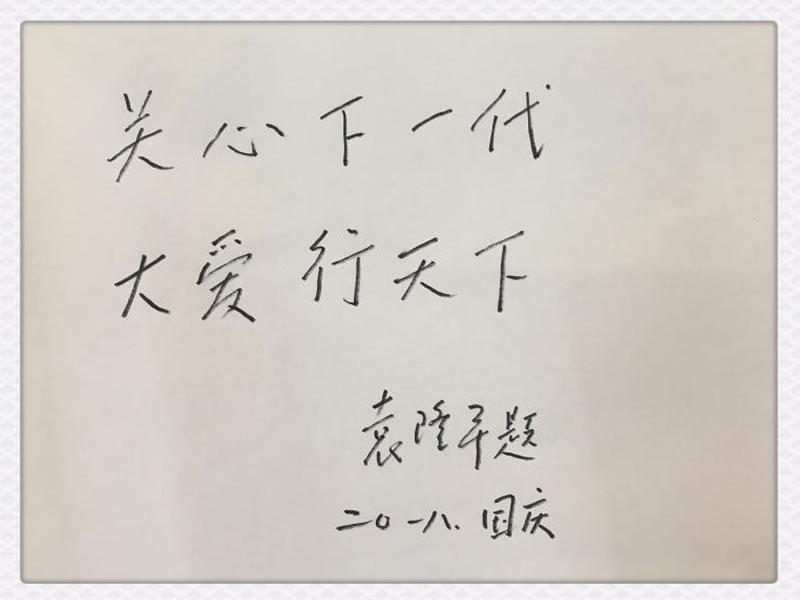 关心下一代
大爱行天下
袁隆平题
二〇一八.国庆